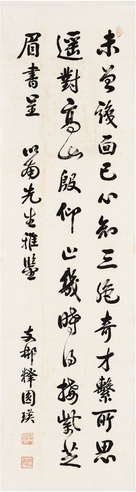 未曾識面已心知三絕奇才繫所思
遙對高山殷仰止幾時得接紫芝
眉書呈 以甫先生雅鑒
支那釋圓瑛